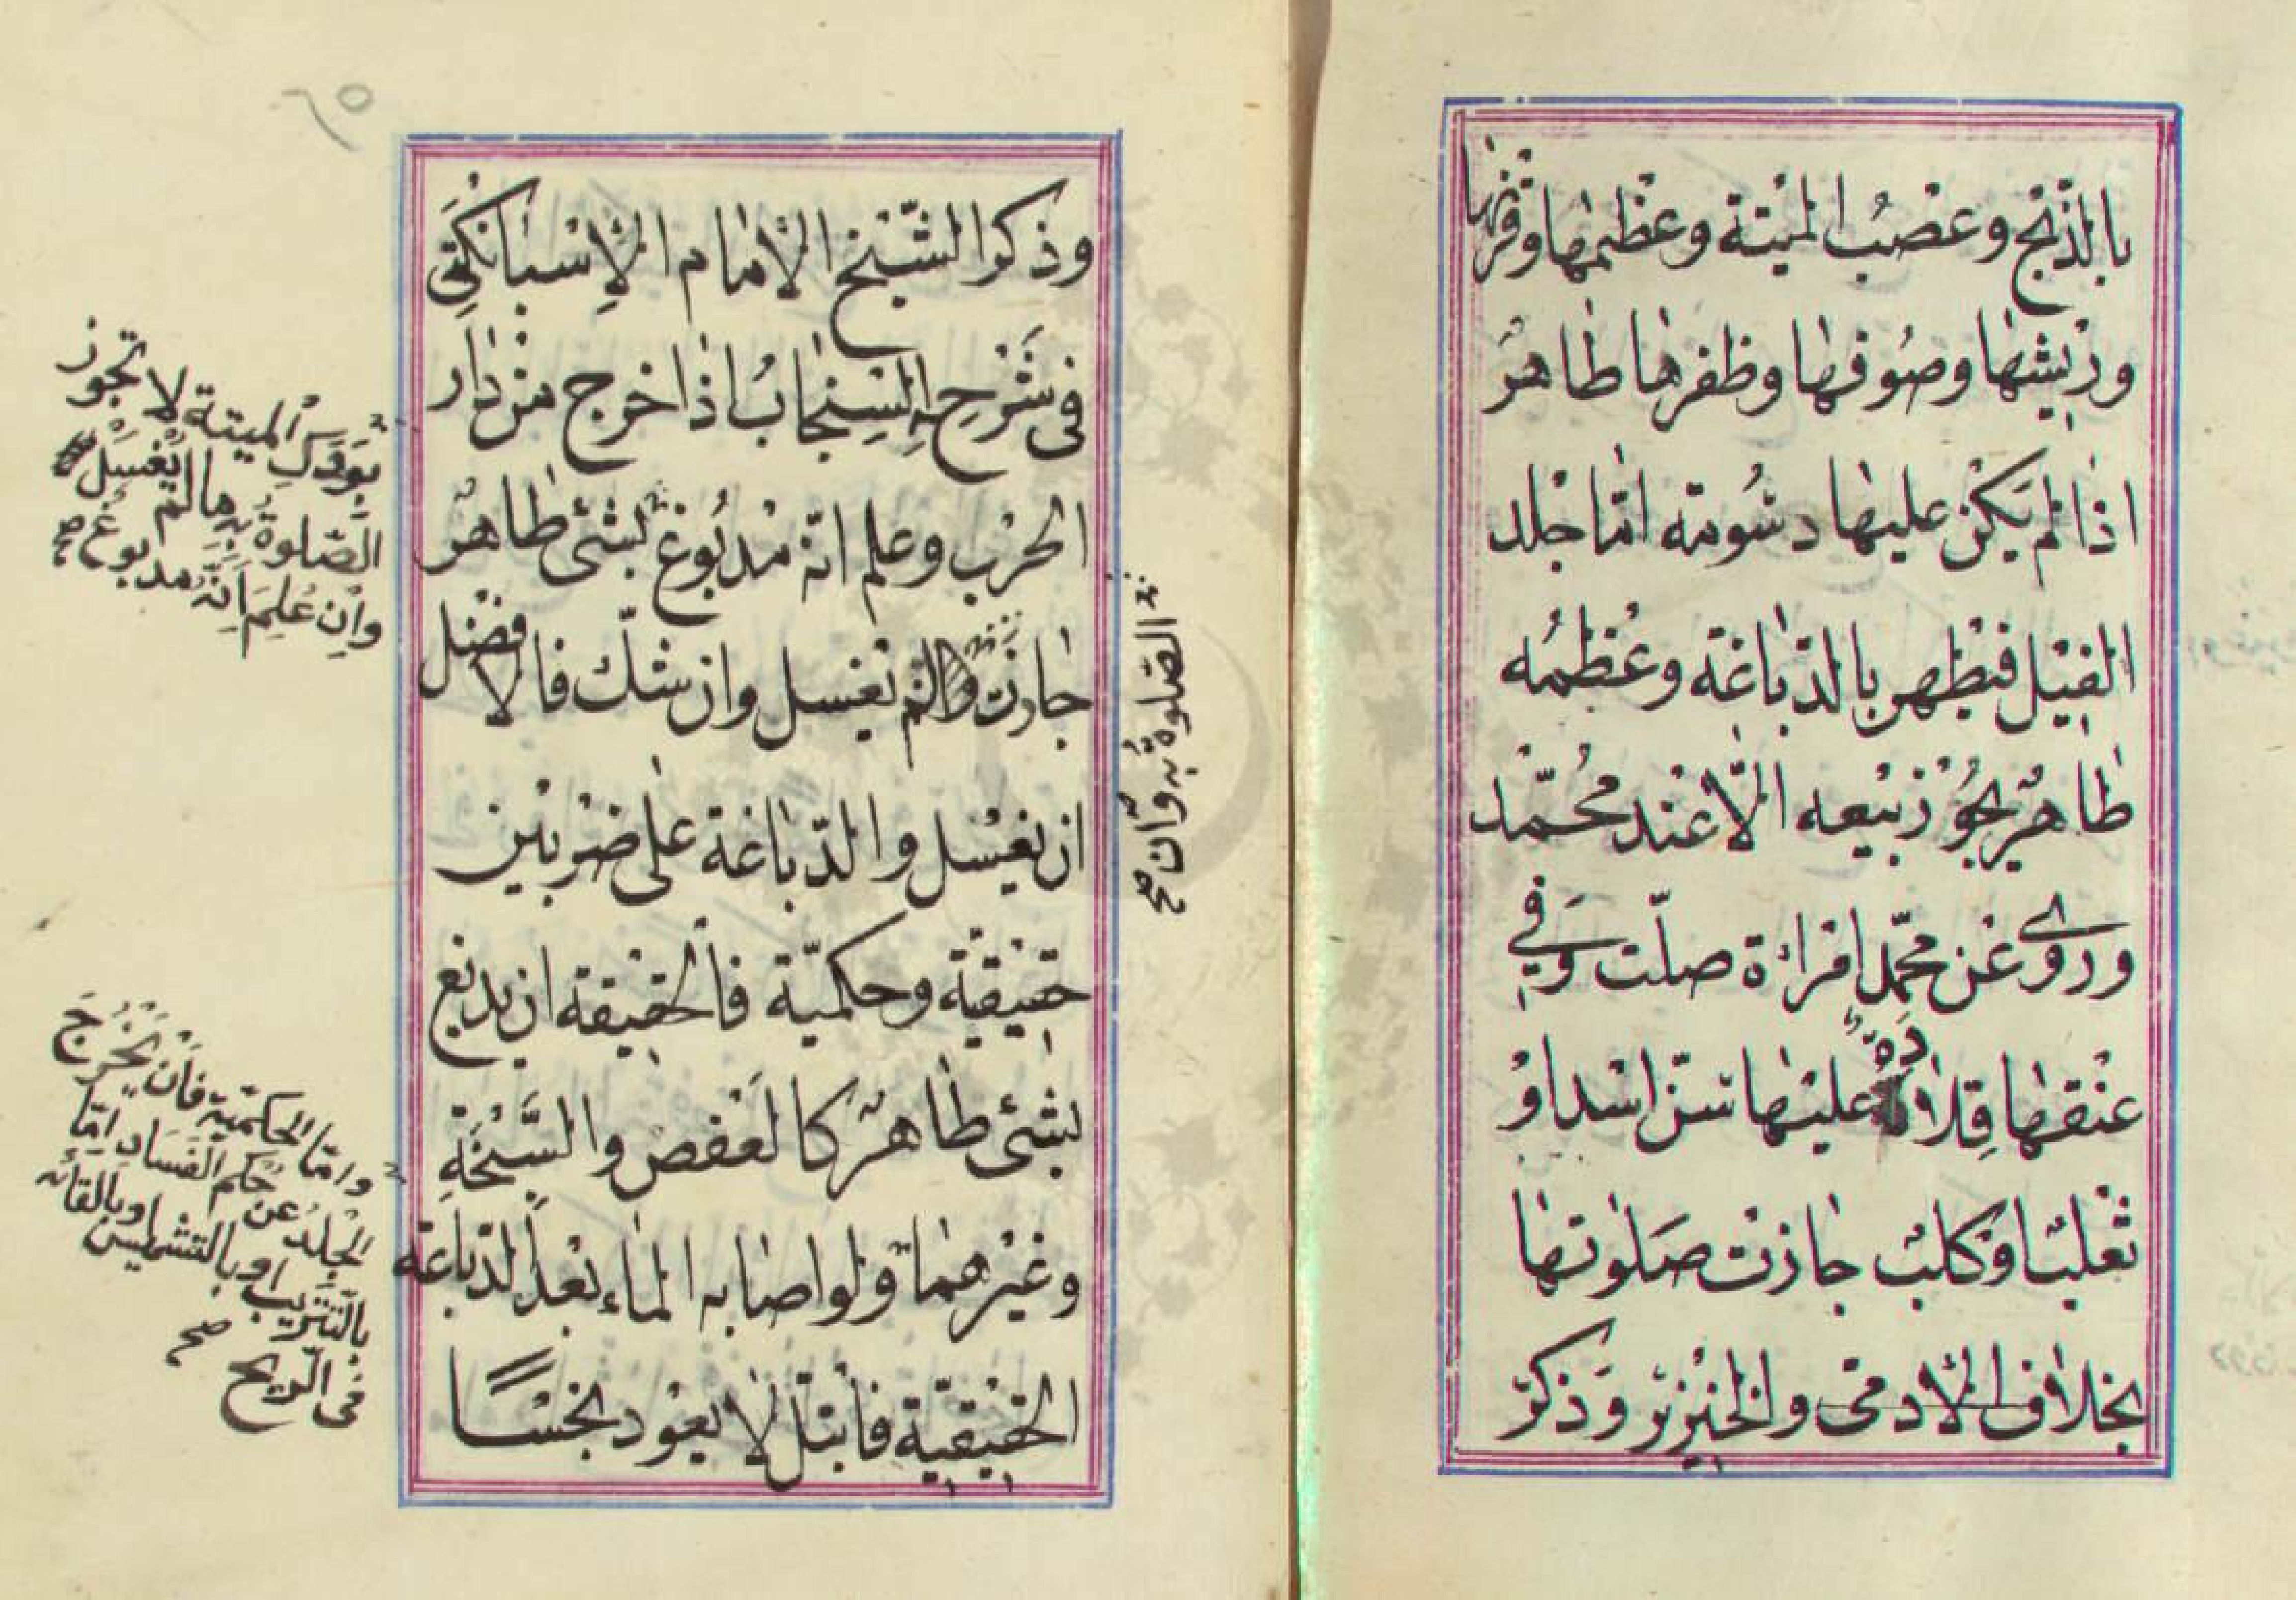 بالذبح وعصب الميتة وعظمها وقرنها
وريشها وصوفها وظفرها طاهر
اذا لم يكن عليها دسومة امّا جلد
الفيل فيطهر بالدّباغة وعظمه
طاهر يجوز بيعه الّا عند محمّد
وروى عن محمّد امراءة صلّت وفي
عنقها قلادة عليها سنّ اسد او
ثعلب او كلب جازت صلوتها
بخلاف الادمى والخنزير وذكر
وذكر الشّيخ الامام الاسبانكتى
فى شرح السنجاب اذا خرج من دار
الحرب وعلم انّه مدبوغ بشئ طاهر
جازت لم تغسل وان شك فالافضل
ان يغسل والدّباغة على ضربين
حقيقيّة وحكميّة فالحقيقة ان يدبغ
بشئ طاهر كالعفص والسّبخة
وغيرهما ولو اصابه الماء بعد الدباغة
الحقيقيّة فابتل لا يعود نجسًا
الصّلوة به وان صح
بودك الميتة لا تجوز
الصّلوة به ما لم يغسل
وان علم انّه مدبوغ صح
وامّا الحكميّة فان يخرج
الجلد عن حكم الفساد امّا
بالتّتريب او بالتشميس او بالقائه
فى الرّيح صح
٢٥